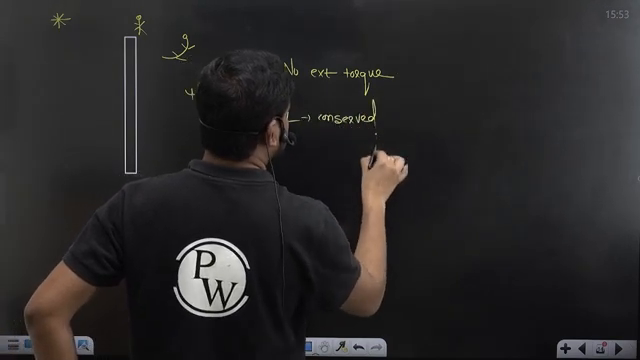 15:53
No ext torque
→ conserved
P
W